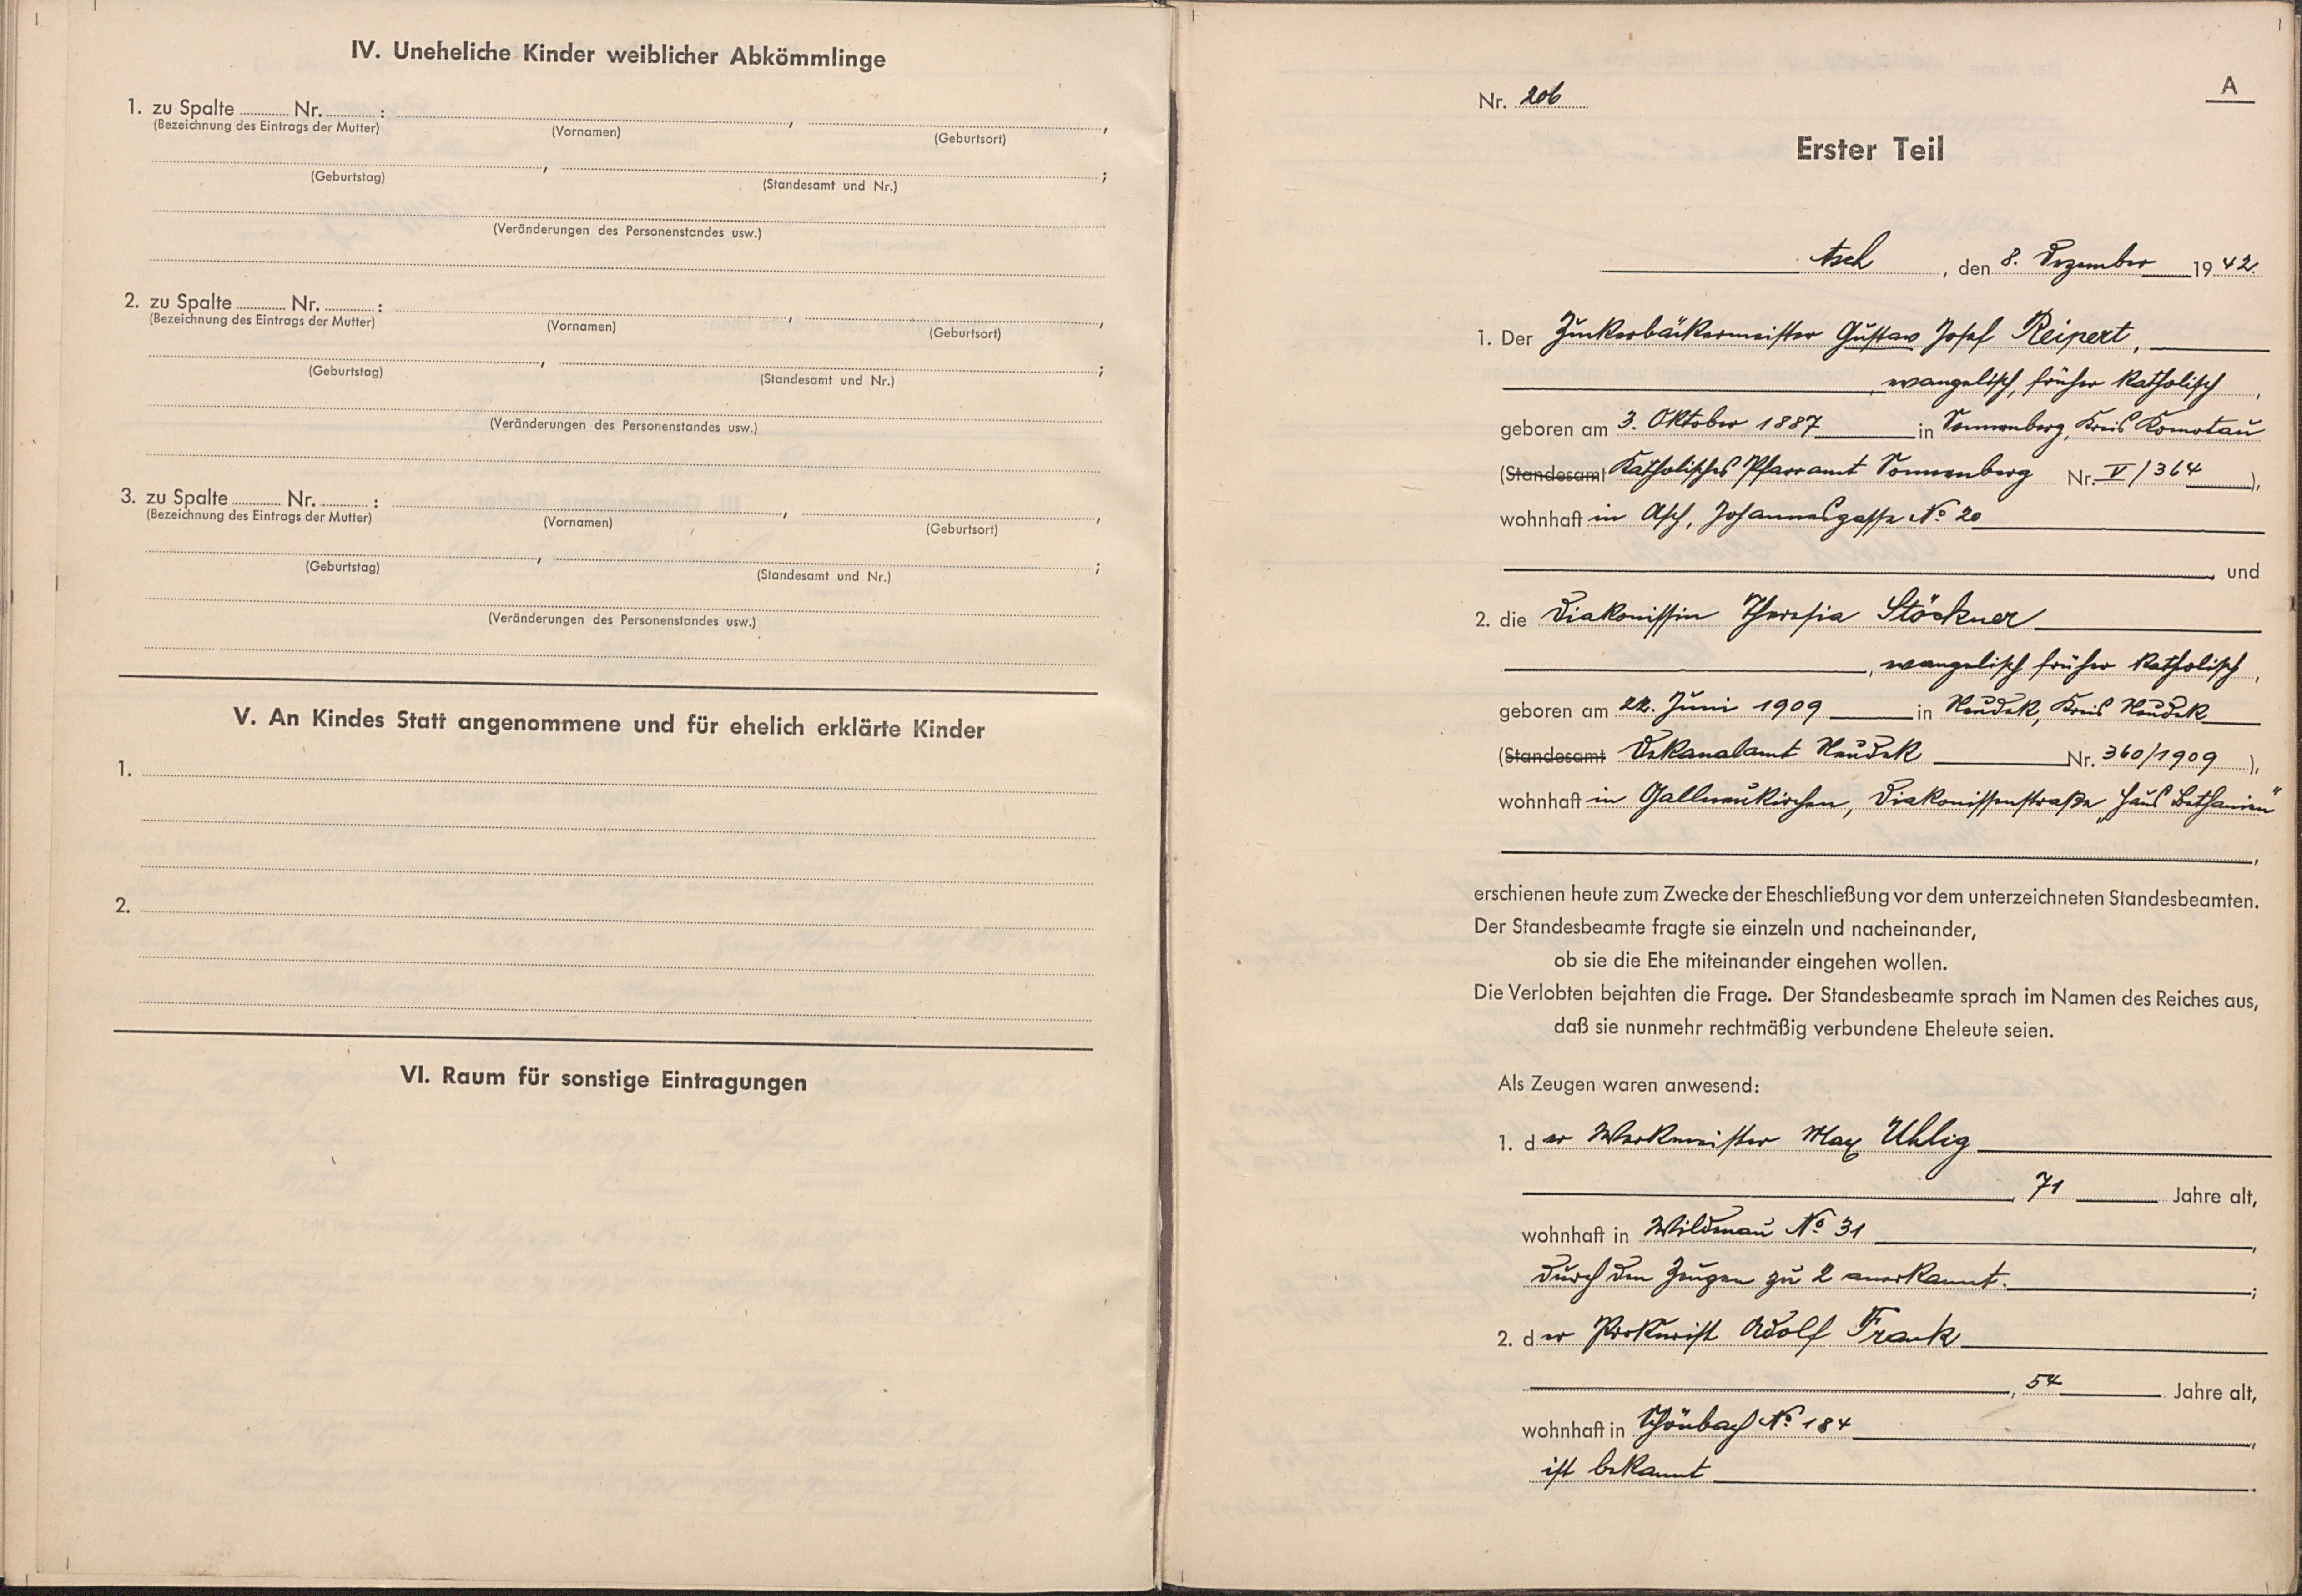 IV. Uneheliche Kinder weiblicher Abkömmlinge
1. zu Spalte Nr. : , ,
(Bezeichnung des Eintrags der Mutter) (Vornamen) (Geburtsort)
, ;
(Geburtstag) (Standesamt und Nr.)
(Veränderungen des Personenstandes usw.)
2. zu Spalte Nr. : , ,
(Bezeichnung des Eintrags der Mutter) (Vornamen) (Geburtsort)
, ;
(Geburtstag) (Standesamt und Nr.)
(Veränderungen des Personenstandes usw.)
3. zu Spalte Nr. : , ,
(Bezeichnung des Eintrags der Mutter) (Vornamen) (Geburtsort)
, ;
(Geburtstag) (Standesamt und Nr.)
(Veränderungen des Personenstandes usw.)
V. An Kindes Statt angenommene und für ehelich erklärte Kinder
1.
2.
VI. Raum für sonstige Eintragungen
A
Nr. 206
Erster Teil
Asch, den 8. Dezember 1942
1. Der Zuckerbäckermeister Gustav Josef Reipert,
, evangelisch, früher katholisch,
geboren am 3. Oktober 1887 in Sonnenberg, Kreis Komotau
(Standesamt Katholisches Pfarramt Sonnenberg Nr. V/364),
wohnhaft in Asch, Johannesgasse No 20
, und
2. die Diakonissin Theresia Stöckner
, evangelisch früher katholisch,
geboren am 22. Juni 1909 in Neudek, Kreis Neudek
(Standesamt Dekanalamt Neudek Nr. 360/1909),
wohnhaft in Gallneukirchen, Diakonissenstraße „Haus Bethanien"
,
erschienen heute zum Zwecke der Eheschließung vor dem unterzeichneten Standesbeamten.
Der Standesbeamte fragte sie einzeln und nacheinander,
ob sie die Ehe miteinander eingehen wollen.
Die Verlobten bejahten die Frage. Der Standesbeamte sprach im Namen des Reiches aus,
daß sie nunmehr rechtmäßig verbundene Eheleute seien.
Als Zeugen waren anwesend:
1. der Werkmeister Max Uhlig
, 71 Jahre alt,
wohnhaft in Wildenau No 31,
durch den Zeugen zu 2 anerkannt. ;
2. der Prokurist Adolf Frank
, 54 Jahre alt,
wohnhaft in Schönbach No 184,
ist bekannt.